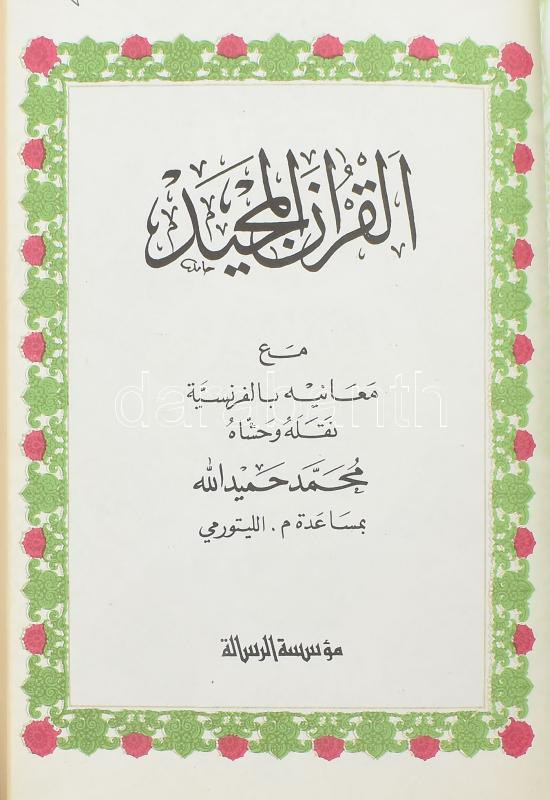 اَلْقُرْاٰنُ الْمَجِيْدُ
حامد
مَع
مَعَانِيْه بِالفرنسِيَّة
نَقَلَهُ وَحَشَّاهُ
مُحَمَّد حَمِيْد اللّٰه
بمسَاعَدة م. الليتورمي
مؤسسة الرسالة
darabanth